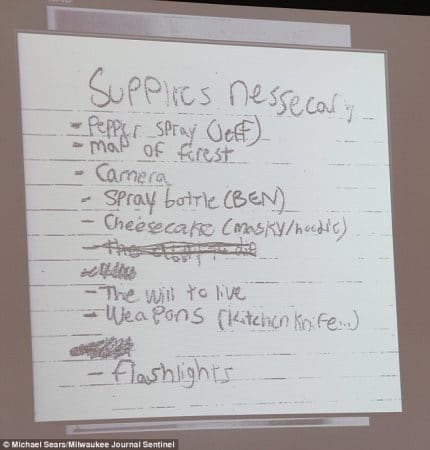 Supplies nessecary
- Pepper spray (Jeff)
- map of forest
- Camera
- spray bottle (BEN)
- Cheesecake (masky/hoodie)
to die
- The will to live
- Weapons (kitchen knife...)
- flashlights
© Michael Sears/Milwaukee Journal Sentinel